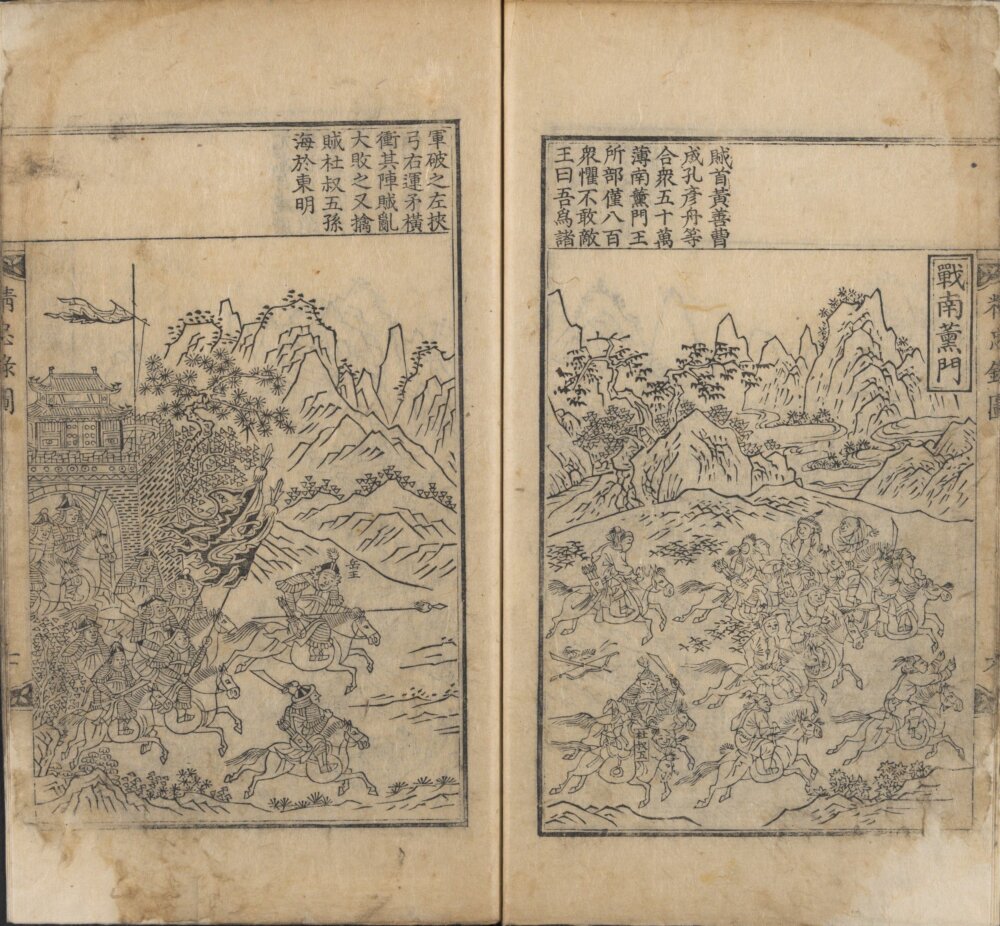 戰南薰門
賊首黃善曹
成孔彥舟等
合衆五十萬
薄南薰門王
所部僅八百
衆懼不敢敵
王曰吾爲諸
杜叔五
軍破之左挾
弓右運矛橫
衝其陣賊亂
大敗之又擒
賊杜叔五孫
海於東明
岳王
精忠錄圖